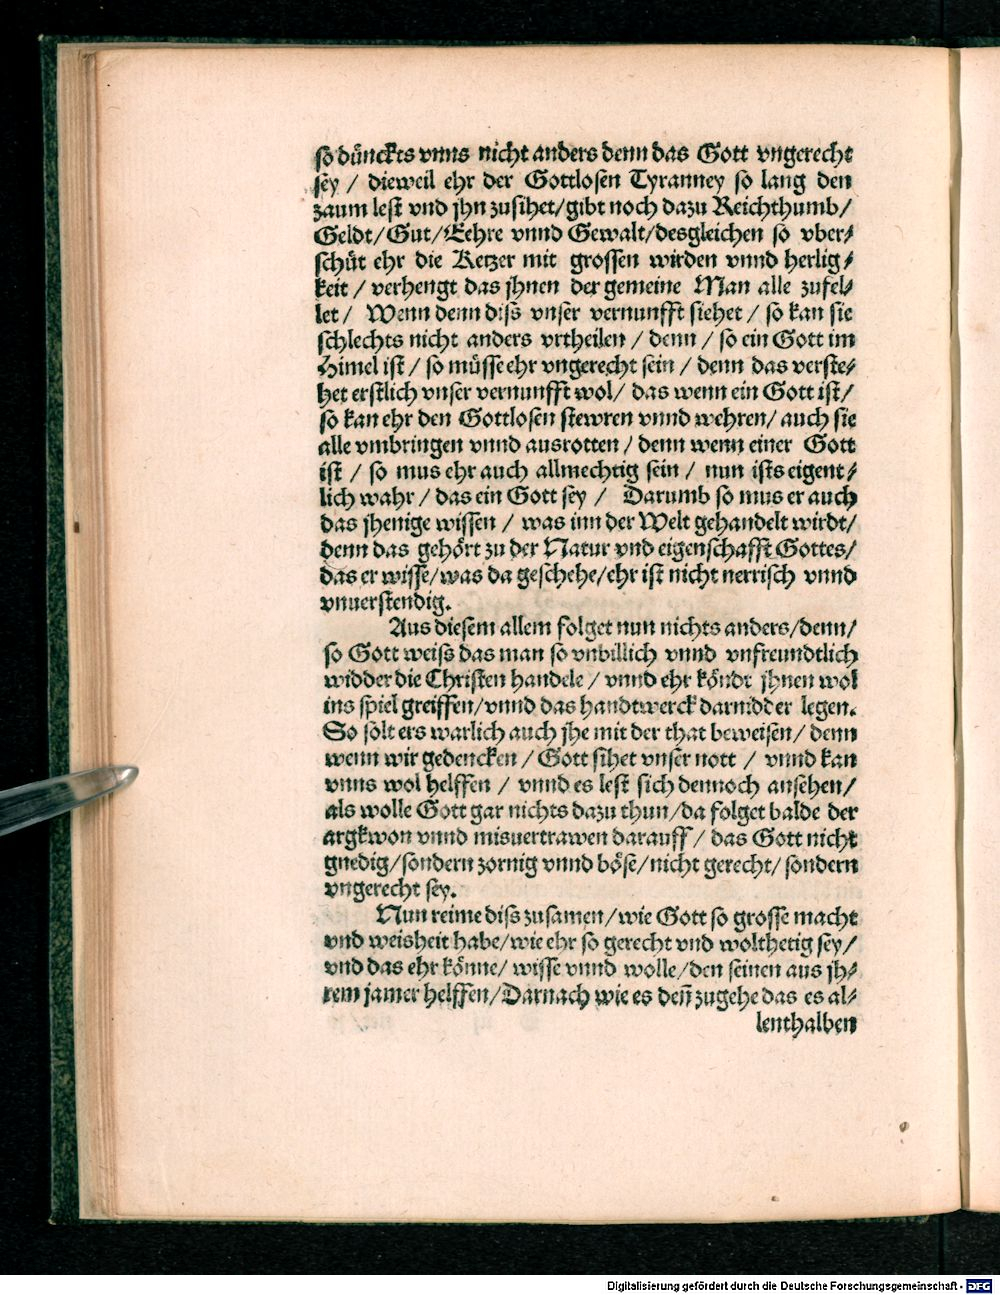 so dünckts vnns nicht anders denn das Gott vngerecht
sey / dieweil ehr der Gottlosen Tyranney so lang den
zaum lest vnd jhn zusihet/gibt noch dazu Reichthumb/
Geldt/Gut/Eehre vnnd Gewalt/desgleichen so vber-
schüt ehr die Ketzer mit grossen wirden vnnd herlig-
keit / verhengt das jhnen der gemeine Man alle zufel-
let / Wenn denn diss vnser vernunfft siehet / so kan sie
schlechts nicht anders vrtheilen / denn / so ein Gott im
Himel ist / so müsse ehr vngerecht sein / denn das verste-
het erstlich vnser vernunfft wol/ das wenn ein Gott ist/
so kan ehr den Gottlosen stewren vnnd wehren/ auch sie
alle vmbringen vnnd ausrotten / denn wenn einer Gott
ist / so mus ehr auch allmechtig sein / nun ists eigent-
lich wahr / das ein Gott sey / Darumb so mus er auch
das jhenige wissen / was inn der Welt gehandelt wirdt/
denn das gehört zu der Natur vnd eigenschafft Gottes/
das er wisse/was da geschehe/ehr ist nicht nerrisch vnnd
vnuerstendig.
Aus diesem allem folget nun nichts anders/denn/
so Gott weiss das man so vnbillich vnnd vnfreundtlich
widder die Christen handele / vnnd ehr köndt jhnen wol
ins spiel greiffen/vnnd das handtwerck darnidder legen.
So solt ers warlich auch jhe mit der that beweisen/ denn
wenn wir gedencken / Gott sihet vnser nott / vnnd kan
vnns wol helffen / vnnd es lest sich dennoch ansehen/
als wolle Gott gar nichts dazu thun/da folget balde der
argkwon vnnd misuertrawen darauff / das Gott nicht
gnedig/sondern zornig vnnd böse/nicht gerecht/ sondern
vngerecht sey.
Nun reime diss zusamen/wie Gott so grosse macht
vnd weisheit habe/wie ehr so gerecht vnd wolthetig sey/
vnd das ehr könne/ wisse vnnd wolle/den seinen aus jh-
rem jamer helffen/Darnach wie es deñ zugehe das es al-
lenthalben
Digitalisierung gefördert durch die Deutsche Forschungsgemeinschaft - DFG